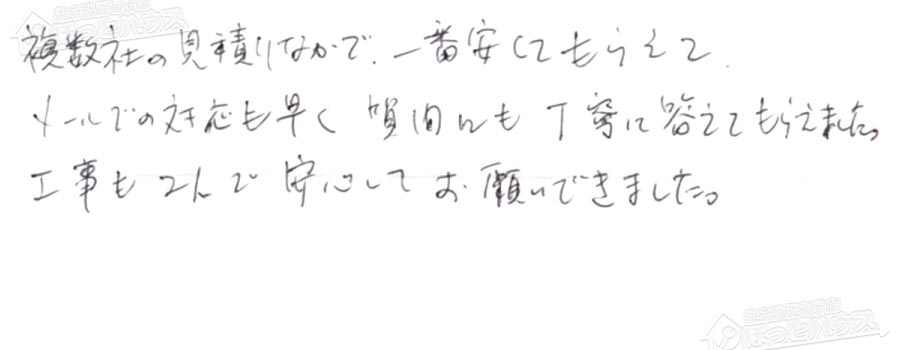 複数社の見積りなかで、一番安くしてもらえて
メールでの対応も早く 質問にも 丁寧に答えてもらえました。
工事も 2人で 安心して お願いできました。
ほっとハウス
ほっとハウス